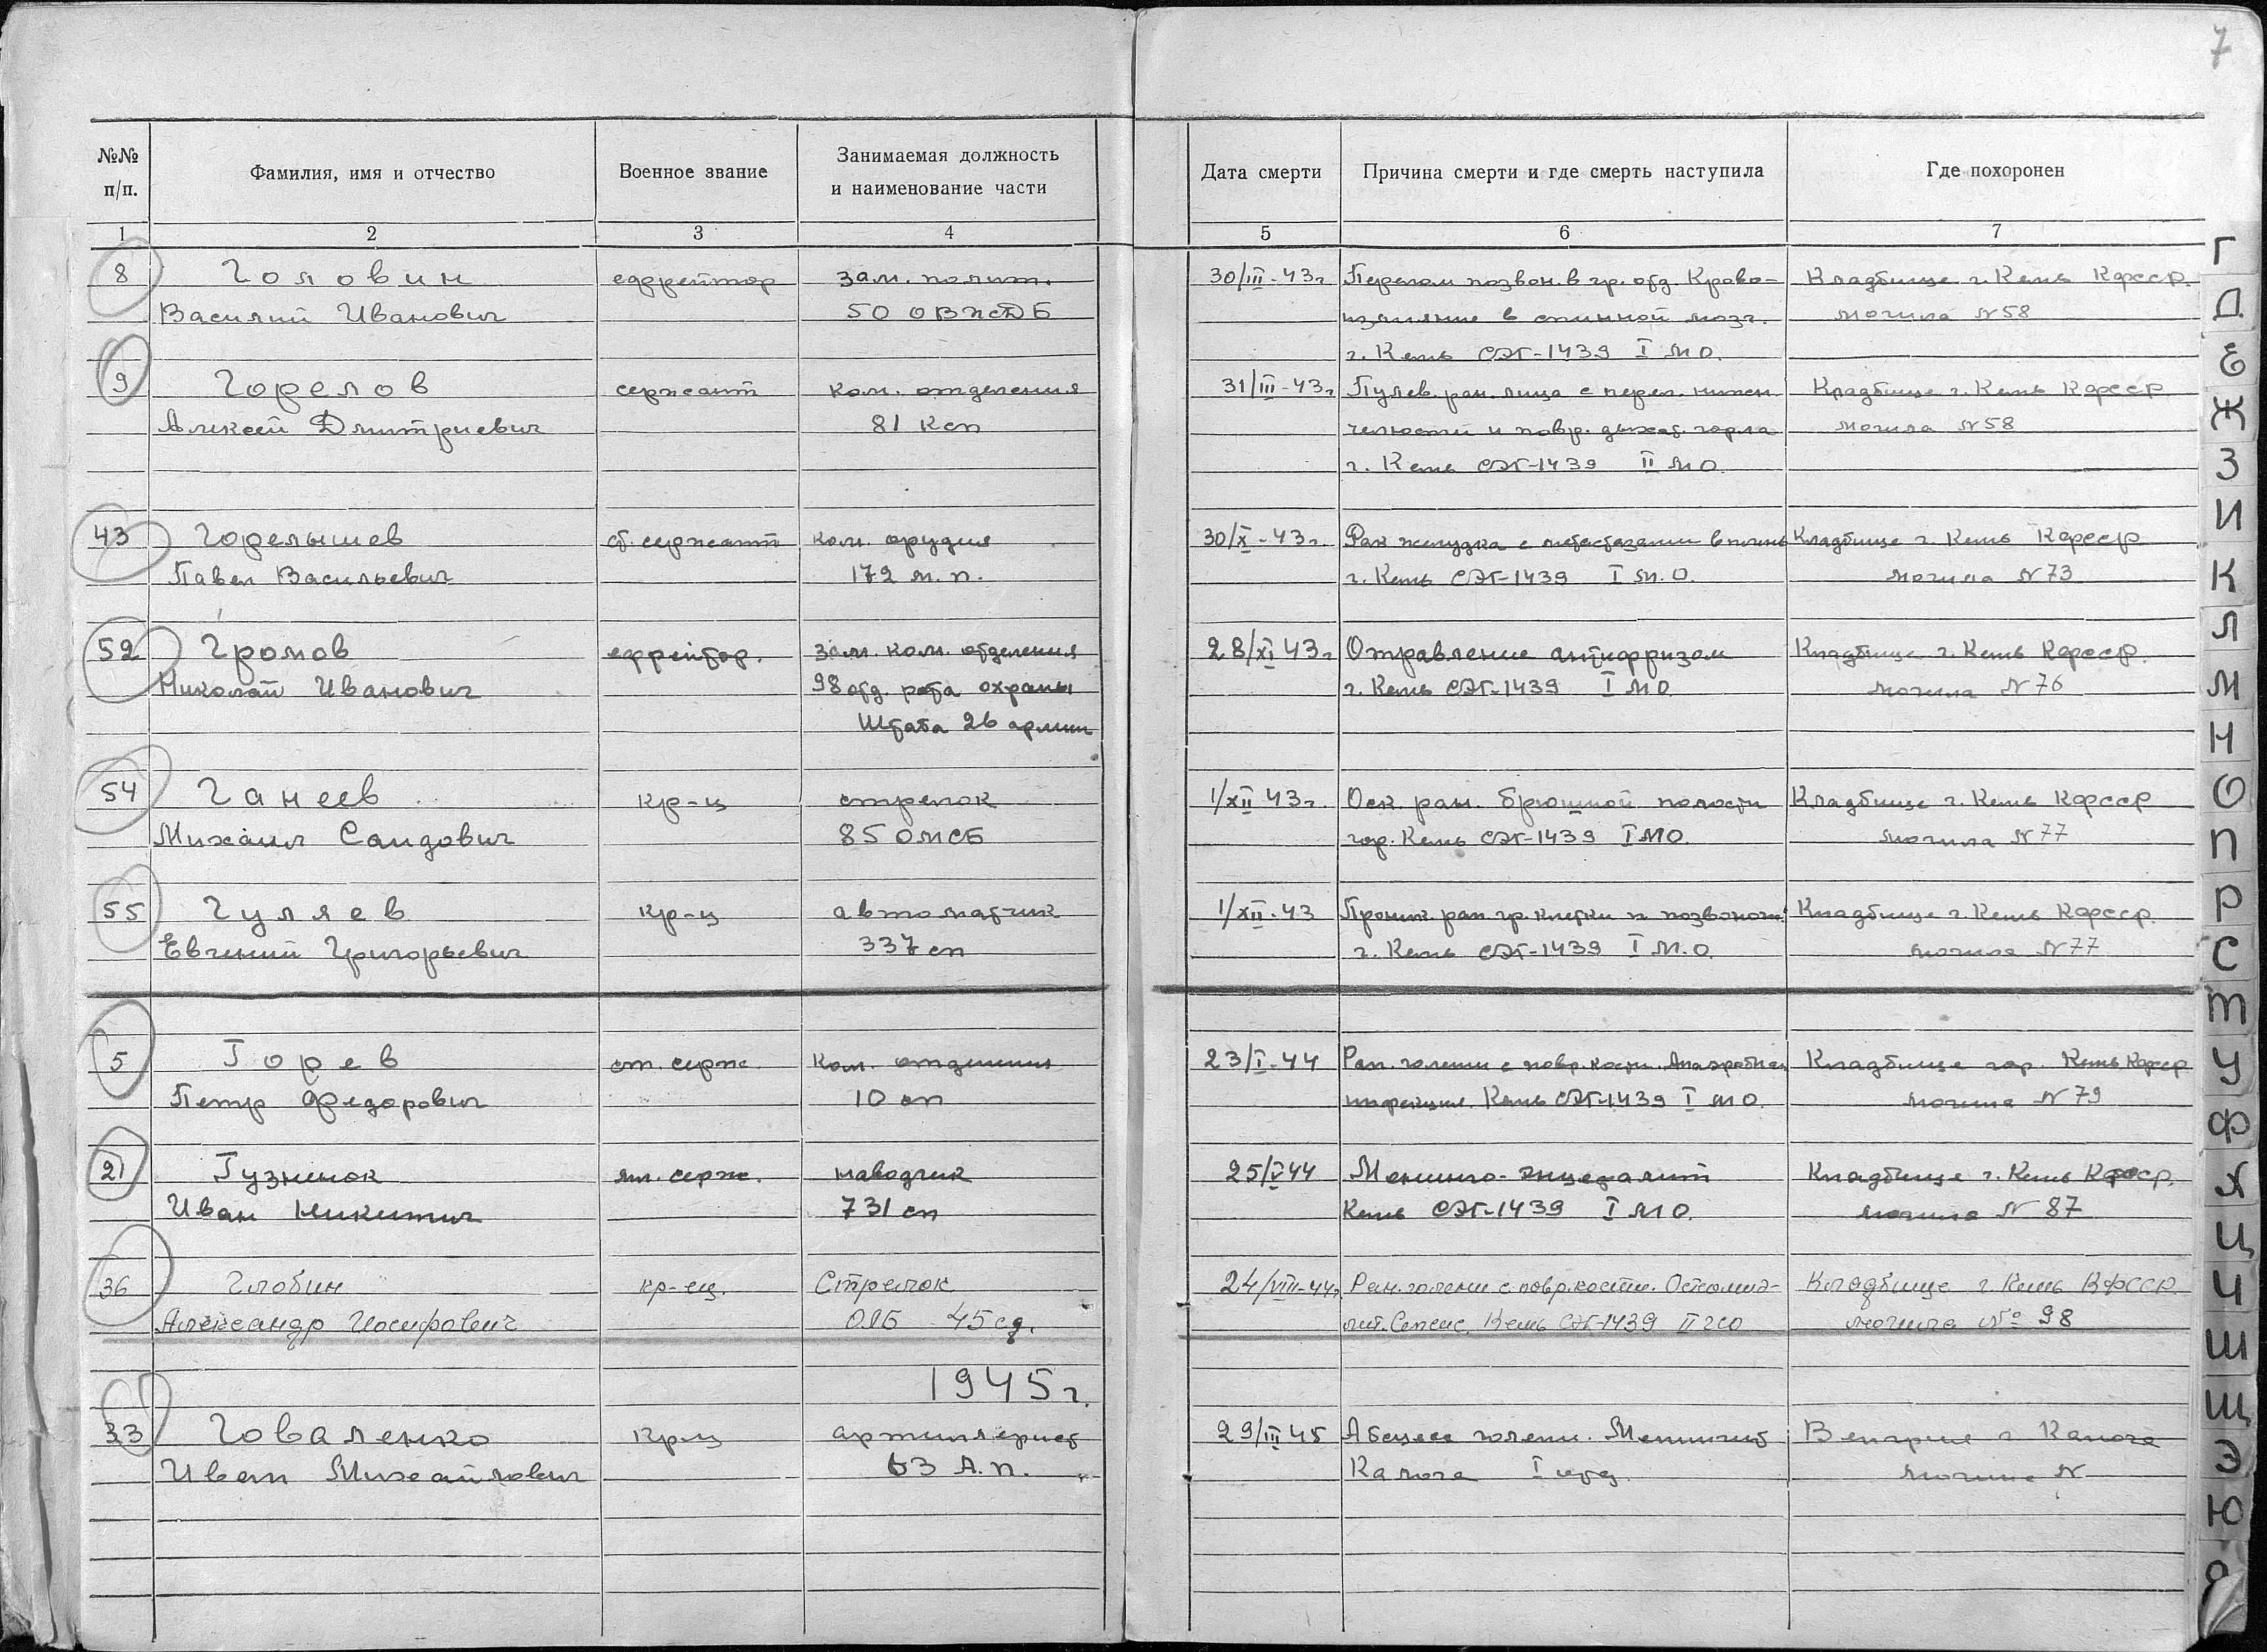 7
№№ п/п. Фамилия, имя и отчество Военное звание Занимаемая должность и наименование части Дата смерти Причина смерти и где смерть наступила Где похоронен
1 2 3 4 5 6 7
8 Головин ефрейтор зам. полит. 30/III-43г Перелом позвон. в гр. отд. Крово- Кладбище г. Кемь Кфсср.
Василий Иванович 50 ОВЖДБ излияние в спинной мозг. могила N58
г. Кемь СЭГ-1439 I МО.
9 Горелов сержант ком. отделения 31/III-43г Пулев. ран. лица с перел. нижн. Кладбище г. Кемь Кфсср
Алексей Дмитриевич 81 Ксп челюсти и повр. дыхат. горла могила N58
г. Кемь СЭГ-1439 II МО.
43 Горелышев ст. сержант ком. орудия 30/X-43г. Рак желудка с метастазами в печень Кладбище г. Кемь Кфсср
Павел Васильевич 172 м. п. г. Кемь СЭГ-1439 I М.О. могила N73
52 Громов ефрейтор. зам. ком. отделения 28/XI 43г Отравление антифризом Кладбище г. Кемь Кфсср.
Николай Иванович 98 отд. рота охраны г. Кемь СЭГ-1439 I МО могила N76
Штаба 26 армии
54 Ганеев кр-ц стрелок 1/XII 43г. Оск. ран. брюшной полости Кладбище г. Кемь Кфсср
Михаил Саидович 85 ОМСБ гор. Кемь СЭГ-1439 I МО. могила N77
55 Гуляев кр-ц автоматчик 1/XII-43 Проник. ран. гр. клетки и позвоночн. Кладбище г. Кемь Кфсср.
Евгений Григорьевич 337 сп г. Кемь СЭГ-1439 I М.О. могила N77
5 Горев ст. серж. Ком. отделения 23/I-44 Ран. голени с повр. кости. Анаэробная Кладбище гор. Кемь Кфсср
Петр Федорович 10 сп инфекция. Кемь СЭГ-1439 I МО. могила N79
21 Гузненок мл. серж. наводчик 25/V44 Менинго-энцефалит Кладбище г. Кемь Кфсср.
Иван Никитич 731 сп Кемь СЭГ-1439 I МО. могила N 87
36 Глобин кр-ец. Стрелок 24/VIII-44г. Ран. голени с повр. кости. Остеомиэ- Кладбище г. Кемь КФССР.
Александр Иосифович 45 сд. лит. Сепсис. Кемь СЭГ-1439 II могила № 98
1945г.
33 Говаленко Кр-ц артиллерист 29/III 45 Абсцесс голени. Менингит Венгрия г Калоча
Иван Михайлович 63 А.П. Калоча I могила N
Г
Д
Е
Ж
З
И
К
Л
М
Н
О
П
Р
С
Т
У
Ф
Х
Ц
Ч
Ш
Щ
Э
Ю
Я